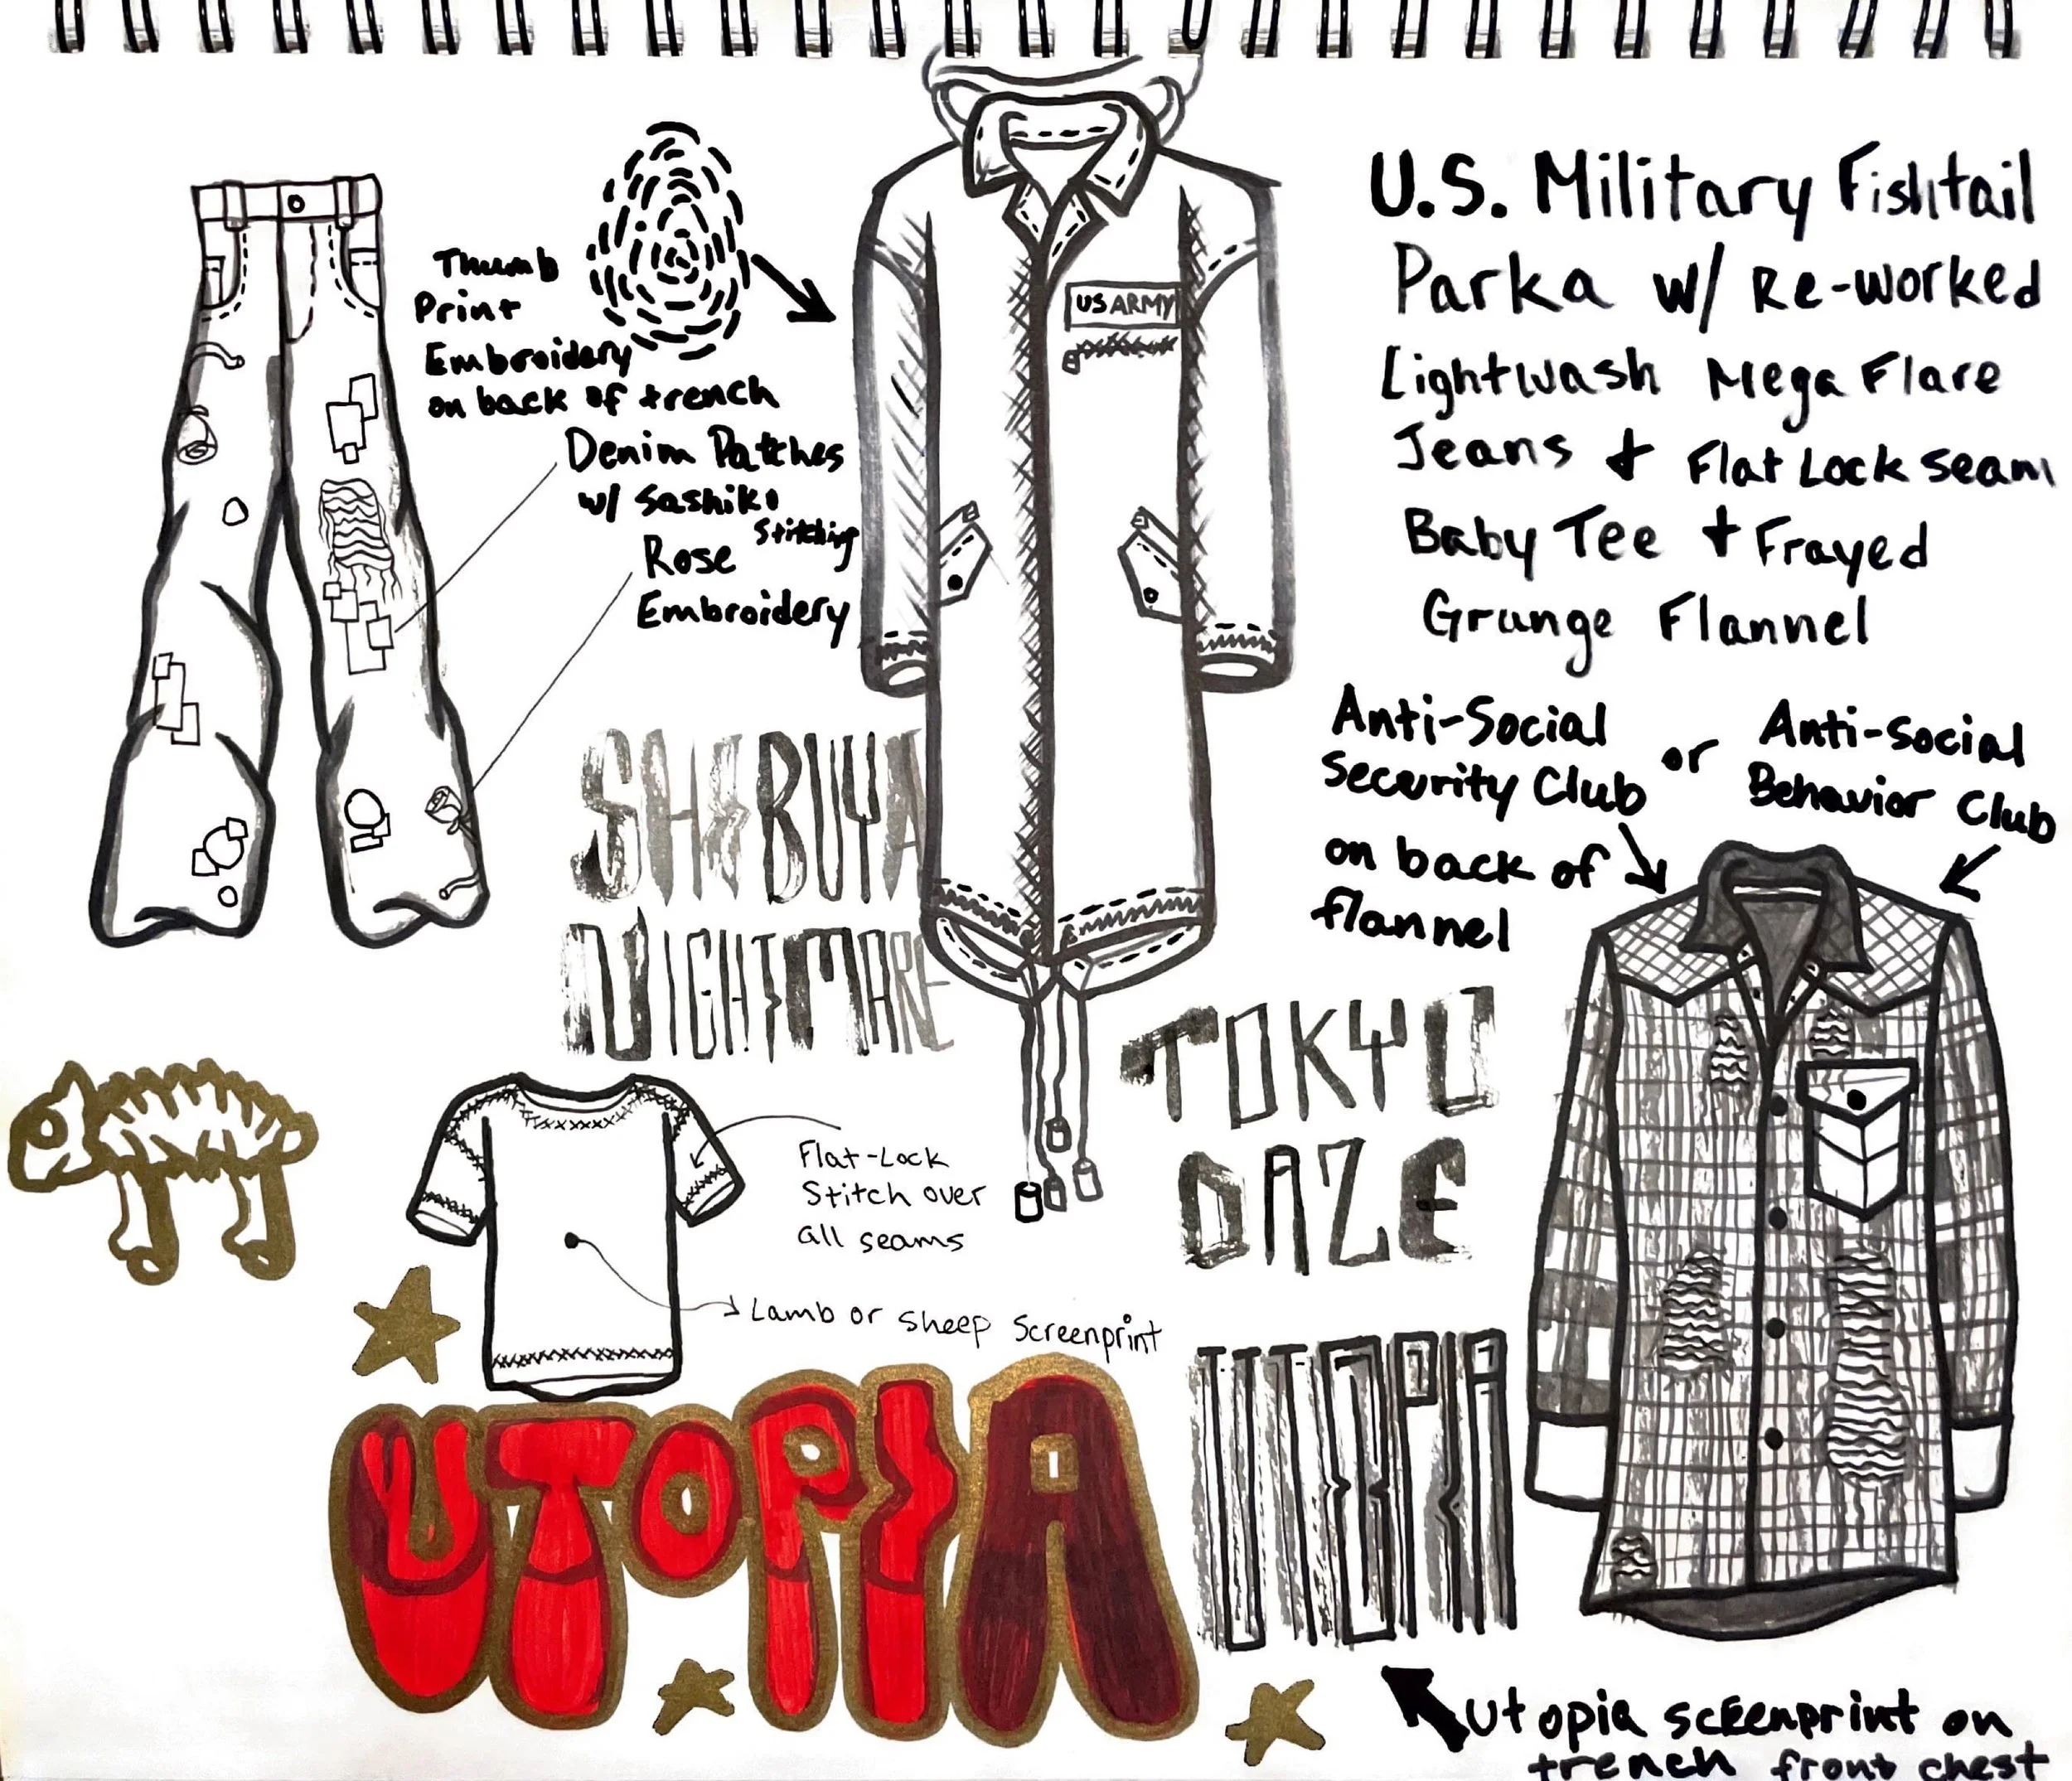 U.S. Military Fishtail
Parka w/ Re-worked
Lightwash Mega Flare
Jeans + Flat Lock seam
Baby Tee + Frayed
Grunge Flannel
Thumb
Print
Embroidery
on back of trench
Denim Patches
w/ Sashiko
Stitching
Rose
Embroidery
US ARMY
Anti-Social
Security Club
or
Anti-Social
Behavior Club
on back of
flannel
SHIBUYA
NIGHTMARE
TOKYO
DAZE
Flat-Lock
Stitch over
all seams
Lamb or sheep Screenprint
UTOPIA
UTOPIA
Utopia screenprint on
trench front chest